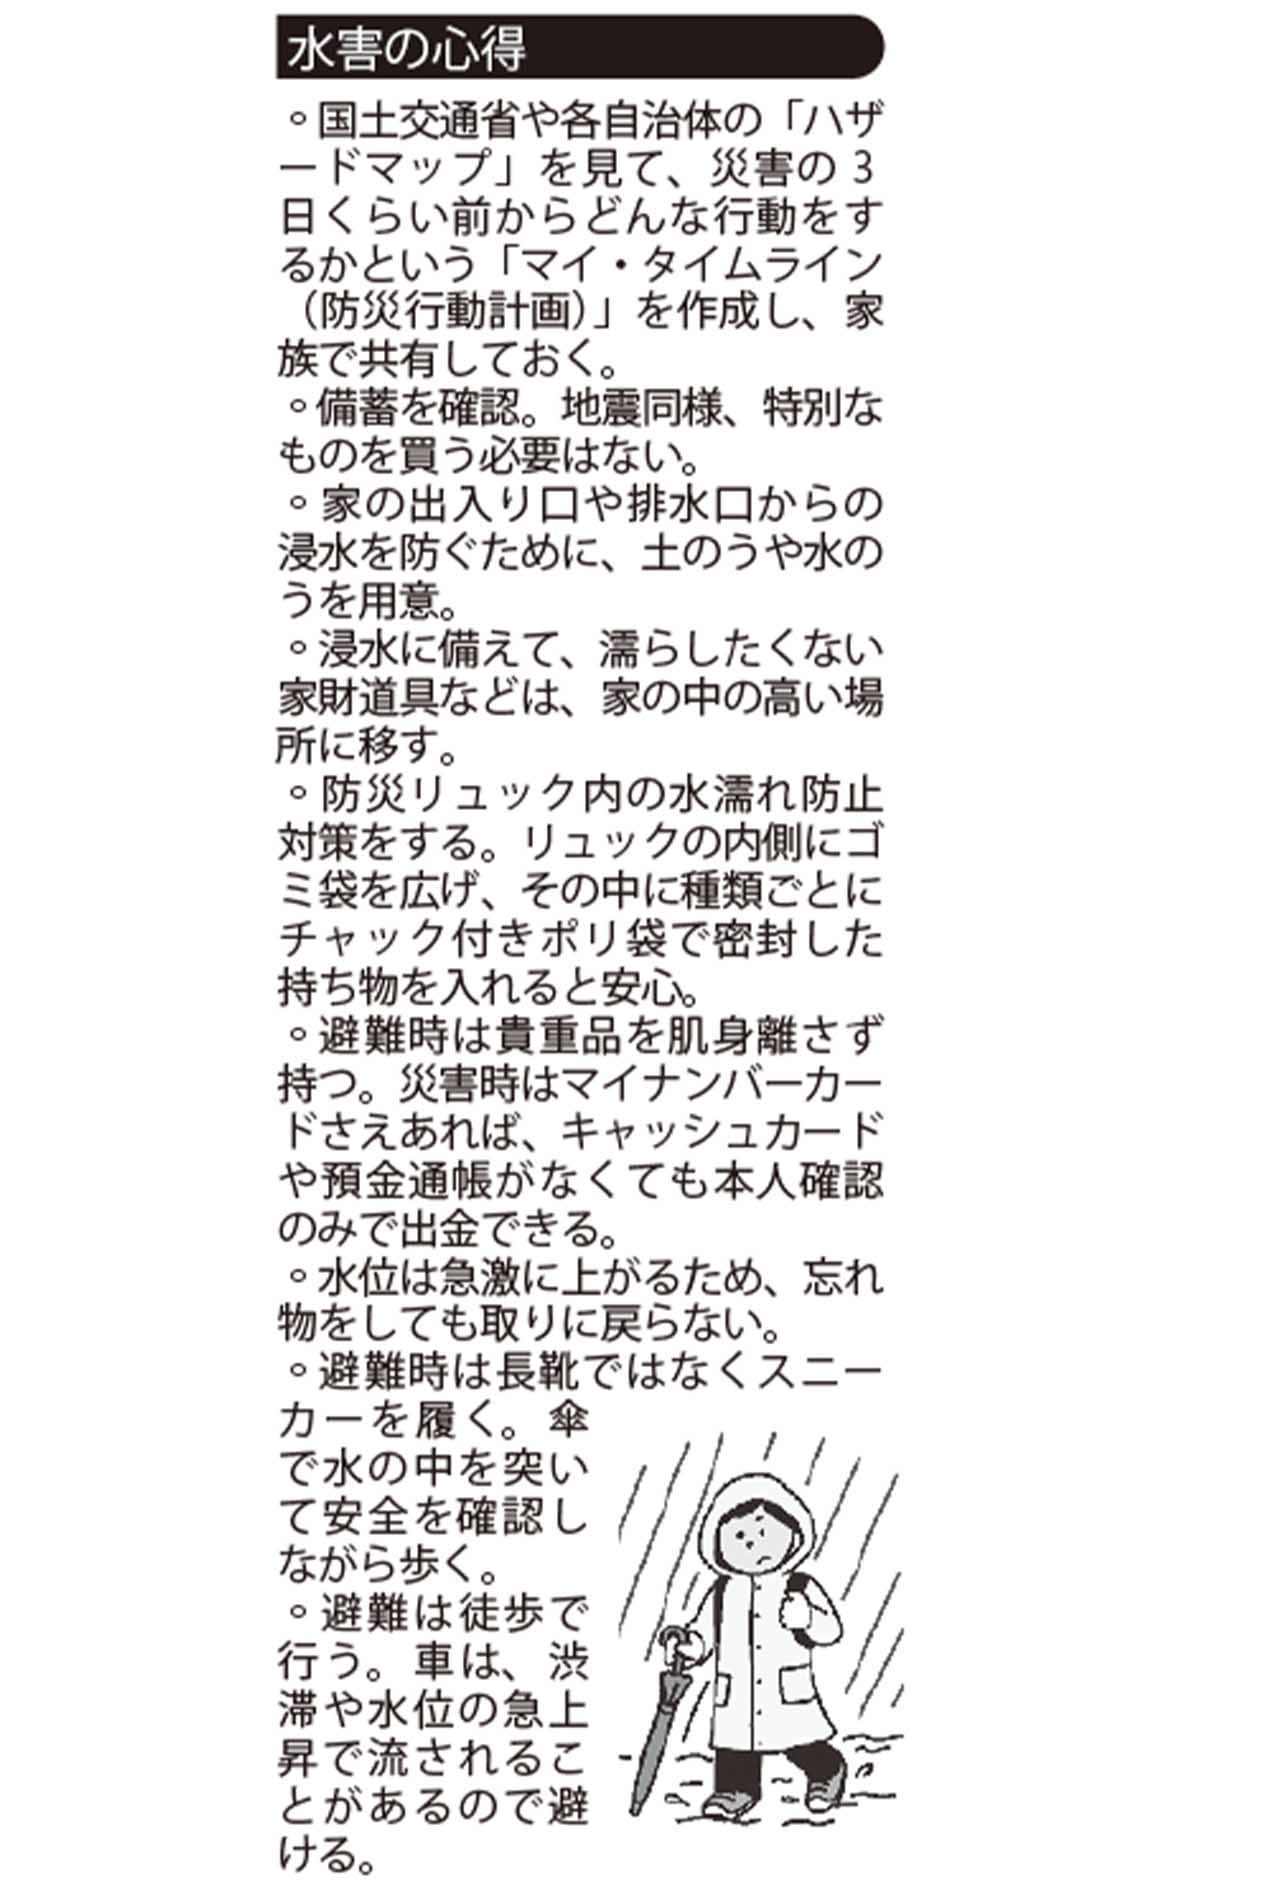 水害の心得
○国土交通省や各自治体の「ハザ
ードマップ」を見て、災害の3
日くらい前からどんな行動をす
るかという「マイ・タイムライン
（防災行動計画）」を作成し、家
族で共有しておく。
○備蓄を確認。地震同様、特別な
ものを買う必要はない。
○家の出入り口や排水口からの
浸水を防ぐために、土のうや水の
うを用意。
○浸水に備えて、濡らしたくない
家財道具などは、家の中の高い場
所に移す。
○防災リュック内の水濡れ防止
対策をする。リュックの内側にゴ
ミ袋を広げ、その中に種類ごとに
チャック付きポリ袋で密封した
持ち物を入れると安心。
○避難時は貴重品を肌身離さず
持つ。災害時はマイナンバーカー
ドさえあれば、キャッシュカード
や預金通帳がなくても本人確認
のみで出金できる。
○水位は急激に上がるため、忘れ
物をしても取りに戻らない。
○避難時は長靴ではなくスニー
カーを履く。傘
で水の中を突い
て安全を確認し
ながら歩く。
○避難は徒歩で
行う。車は、渋
滞や水位の急上
昇で流されるこ
とがあるので避
ける。